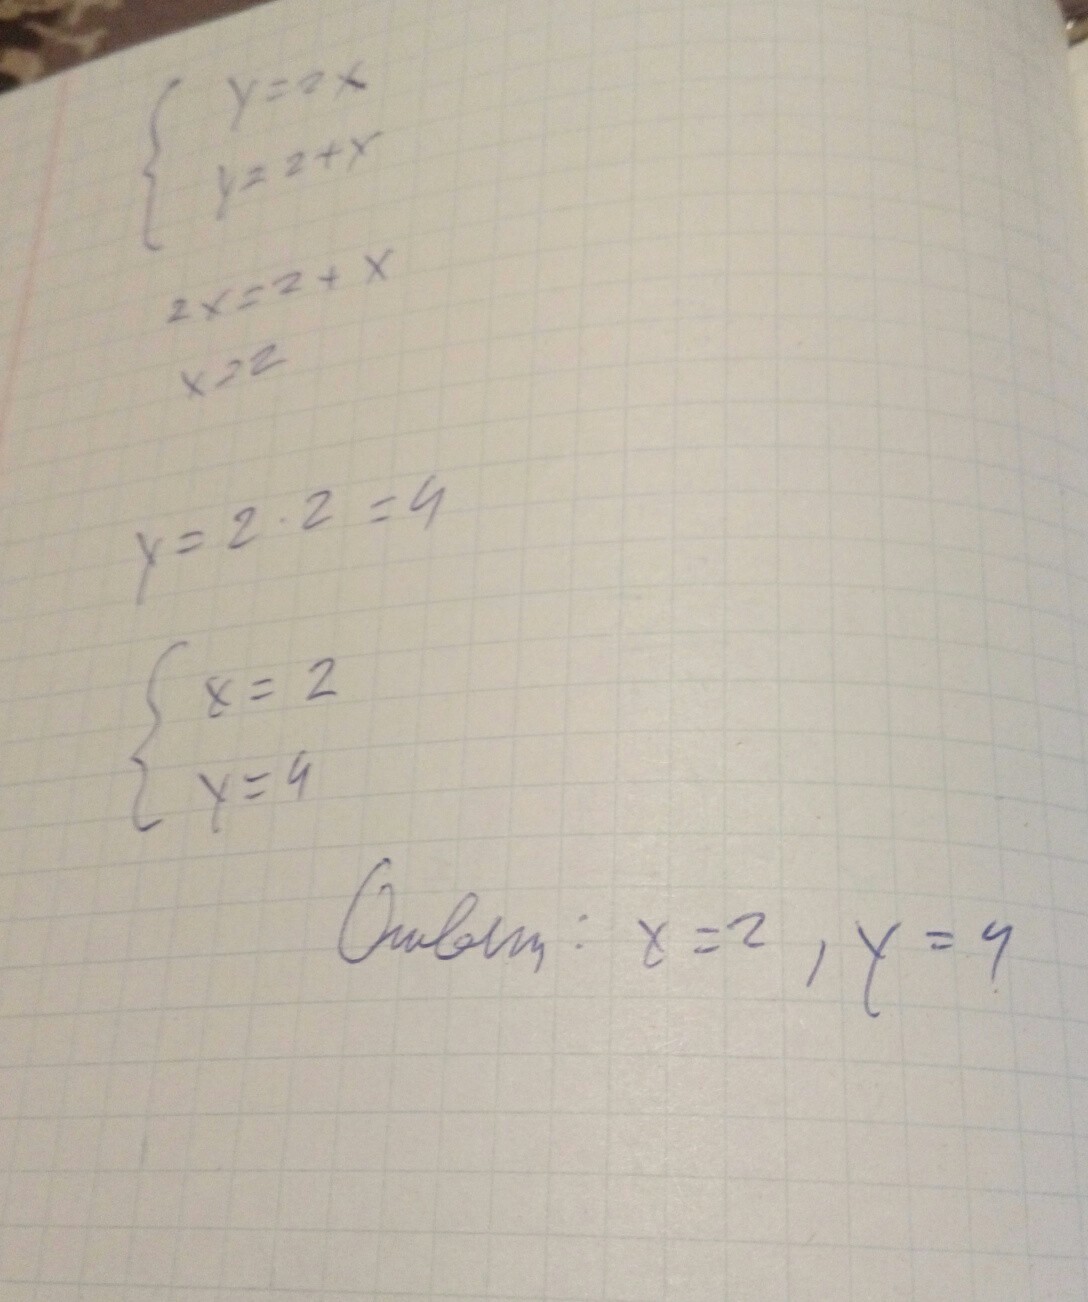 y=2x
y=2+x
2x=2+x
x=2
y=2·2=4
x=2
y=4
Ответ: x=2, y=4